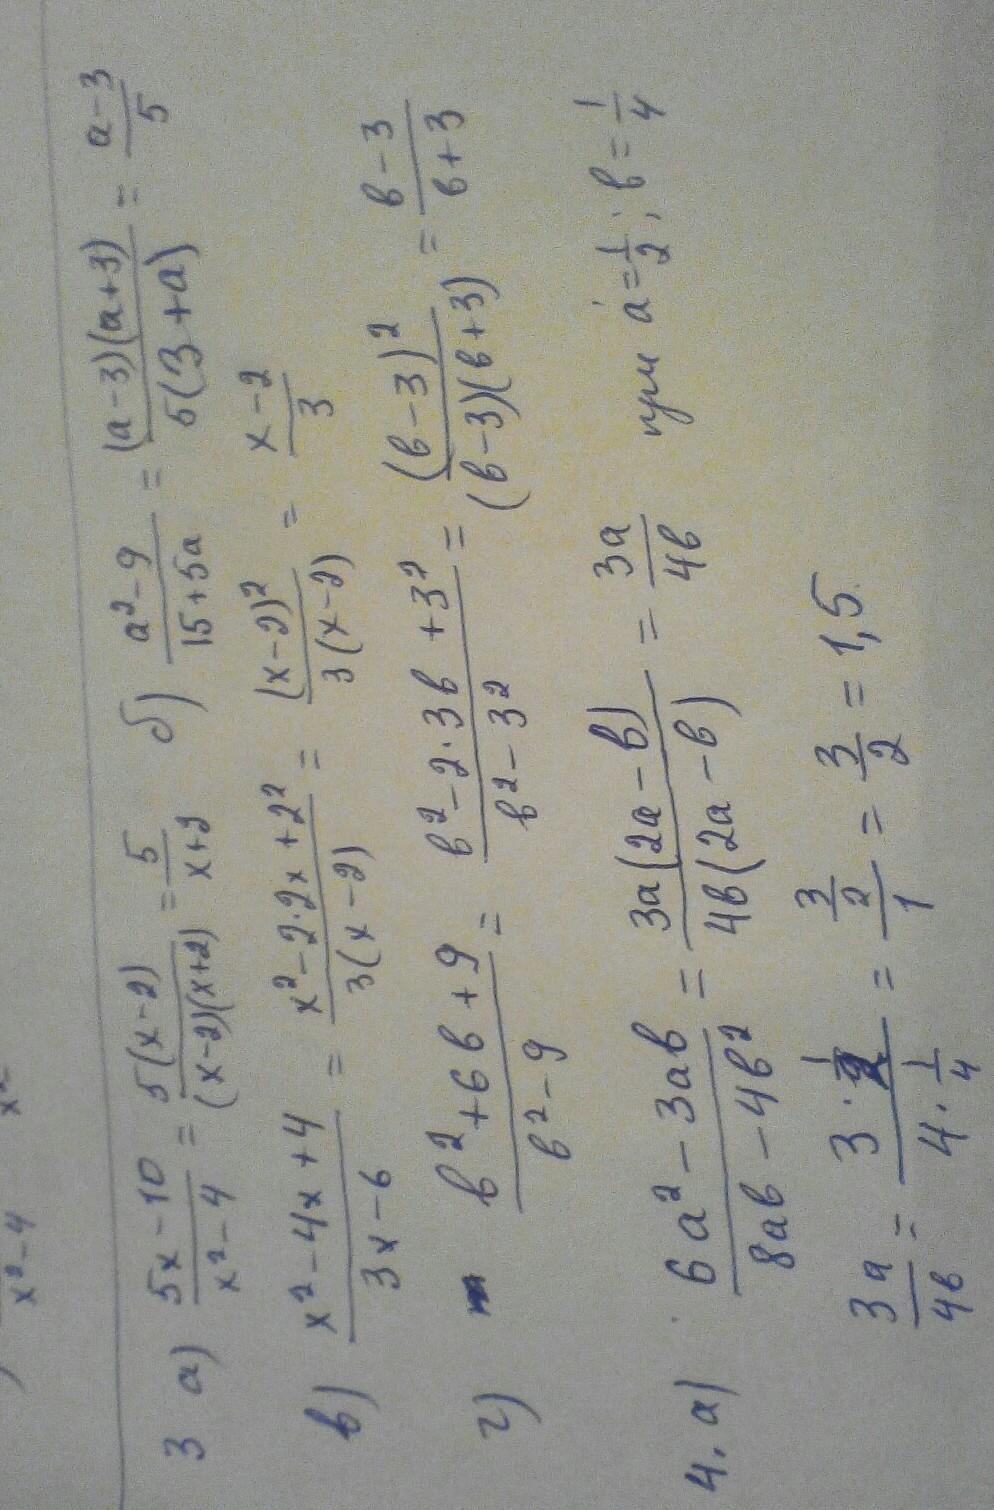 x²-4 x²
3 а) (5x-10)/(x²-4) = (5(x-2))/((x-2)(x+2)) = 5/(x+2) б) (a²-9)/(15+5a) = ((a-3)(a+3))/(5(3+a)) = (a-3)/5
в) (x²-4x+4)/(3x-6) = (x²-2·2x+2²)/(3(x-2)) = (x-2)²/(3(x-2)) = (x-2)/3
г) (в²+6в+9)/(в²-9) = (в²-2·3в+3²)/(в²-3²) = (в-3)²/((в-3)(в+3)) = (в-3)/(в+3)
4. а) (6a²-3aв)/(8aв-4в²) = (3a(2a-в))/(4в(2a-в)) = 3a/4в при a=1/2; в=1/4
3a/4в = (3·1/2)/(4·1/4) = (3/2)/1 = 3/2 = 1,5.